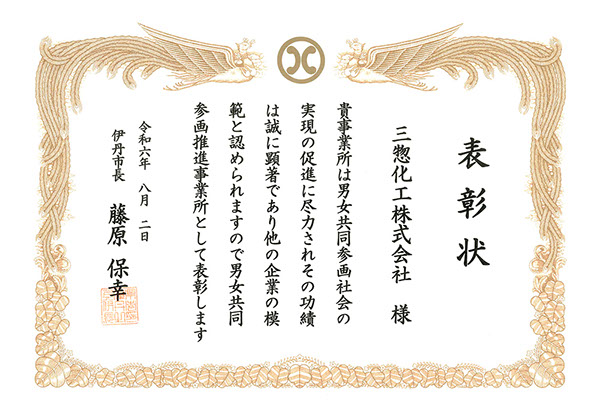 表彰状
三惣化工株式会社 様
貴事業所は男女共同参画社会の
実現の促進に尽力されその功績
は誠に顕著であり他の企業の模
範と認められますので男女共同
参画推進事業所として表彰します
令和六年 八月 二日
伊丹市長 藤原 保幸